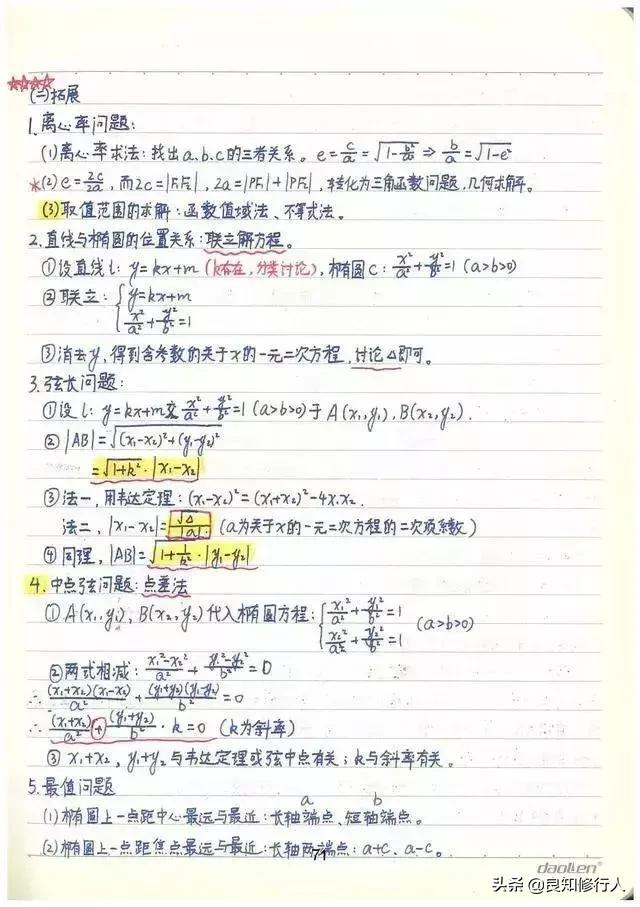 ☆☆☆☆
(二)拓展
1.离心率问题:
(1)离心率求法:找出a.b.c的三者关系。e=c/a=√(1-b²/a²)⇒b/a=√(1-e²)
*(2)e=2c/2a,而2c=|F₁F₂|,2a=|PF₁|+|PF₂|,转化为三角函数问题,几何求解。
(3)取值范围的求解:函数值域法、不等式法。
2.直线与椭圆的位置关系:联立解方程。
①设直线l:y=kx+m(k存在,分类讨论),椭圆C:x²/a²+y²/b²=1(a>b>0)
②联立:{y=kx+m
x²/a²+y²/b²=1
③消去y,得到含参数的关于x的一元二次方程,讨论△即可。
3.弦长问题:
①设l:y=kx+m交x²/a²+y²/b²=1(a>b>0)于A(x₁,y₁),B(x₂,y₂).
②|AB|=√((x₁-x₂)²+(y₁-y₂)²)
=√(1+k²)·|x₁-x₂|
③法一,用韦达定理:(x₁-x₂)²=(x₁+x₂)²-4x₁x₂
法二,|x₁-x₂|=√△/|a|.(a为关于x的一元二次方程的二次项系数)
④同理,|AB|=√(1+1/k²)·|y₁-y₂|
4.中点弦问题:点差法
①A(x₁,y₁),B(x₂,y₂)代入椭圆方程:{x₁²/a²+y₁²/b²=1
x₂²/a²+y₂²/b²=1 (a>b>0)
②两式相减:(x₁²-x₂²)/a²+(y₁²-y₂²)/b²=0
∴(x₁+x₂)(x₁-x₂)/a²+(y₁+y₂)(y₁-y₂)/b²=0
∴(x₁+x₂)/a²+(y₁+y₂)/b²·k=0(k为斜率)
③x₁+x₂,y₁+y₂与韦达定理或弦中点有关;k与斜率有关。
5.最值问题
a b
(1)椭圆上一点距中心最远与最近:长轴端点、短轴端点。
(2)椭圆上一点距焦点最远与最近:长轴两端点:a+c、a-c。
71
daolien®
头条@良知修行人